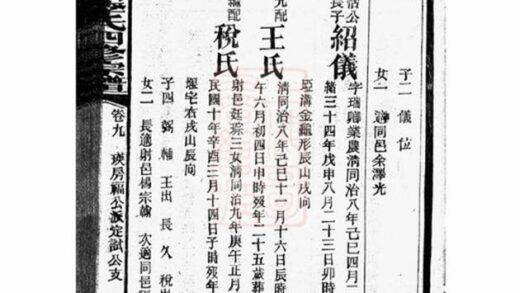 子二 儀 位
女一 適同邑余澤光
公
長子
紹儀
字瑞卿業農清同治八年己巳四月
緒三十四年戊申八月二十三日卯時
埡溝金龜形辰山戌向
配
王氏
清同治八年己巳十一月十六日辰時
午六月初四日申時歿年二十五歲葬
配
稅氏
射邑廷琮三女清同治九年庚午正月
民國十年辛酉三月十四日子時歿年
堰宅右戌山辰向
子四 弼 輔 王出 長 久 稅出
女二 長適射邑楊宗翰 次適同邑
氏四修宗譜 卷九 房福公派定試公支